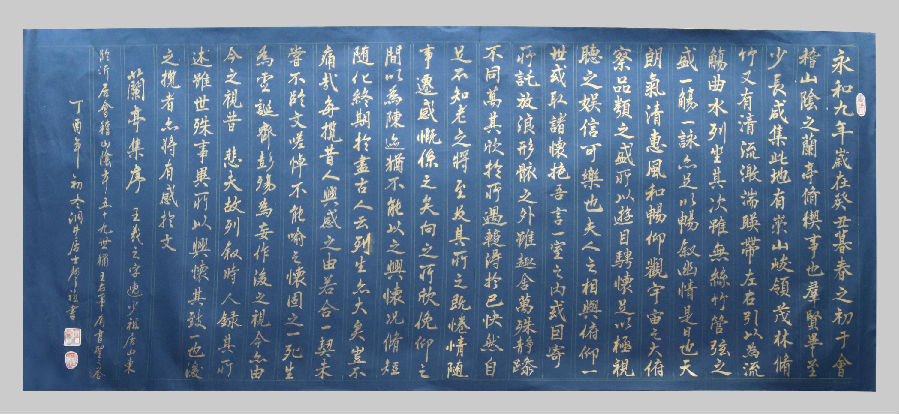 永和九年歲在癸丑暮春之初于會
稽山陰之蘭亭脩稧事也羣賢畢至
少長咸集此地有崇山峻領茂林脩
竹又有清流激湍暎帶左右引以為流
觴曲水列坐其次雖無絲竹管弦之
盛一觴一詠亦足以暢敘幽情是日也天
朗氣清惠風和暢仰觀宇宙之大俯
察品類之盛所以遊目騁懷足以極視
聽之娛信可樂也夫人之相與俯仰一
世或取諸懷抱吾言一室之內或因寄
所託放浪形骸之外雖趣舍萬殊靜躁
不同其欣於所遇蹔得於己快然自
足不知老之將至及其所之既惓情隨
事遷感慨係之矣向之所欣俛仰之
間以為陳迹猶不能以之興懷況脩短
隨化終期於盡古人云死生亦大矣豈不
痛哉每攬昔人興感之由若合一契未
嘗不臨文嗟悼不能喻之懷固之死生
為虛誕齊彭殤為妄作後之視今亦由
今之視昔悲夫故列敘時人錄其所
述雖世殊事異所以興懷其致一也後
之攬者亦將有感於文
蘭亭集序 王羲之字逸少祖居山東
臨沂居會稽山陰五十九世稱王右軍
丁酉年初居士書